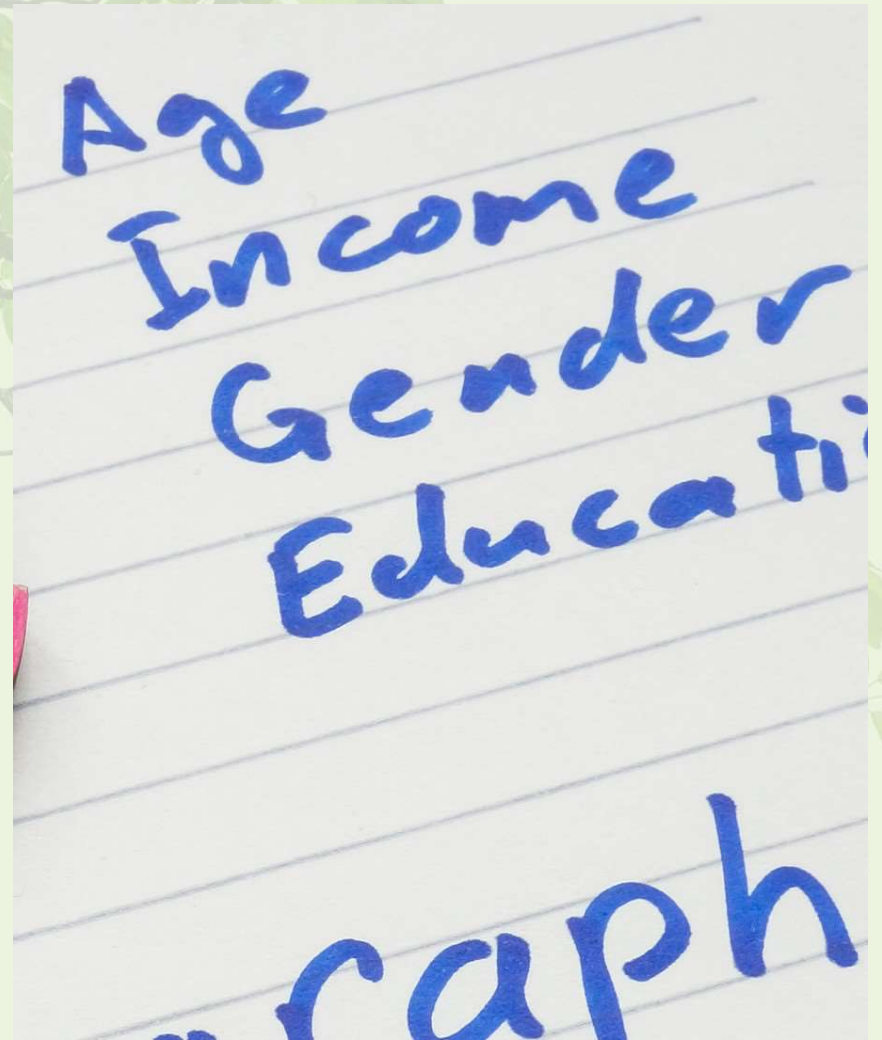 Age
Income
Gender
Educati
raph